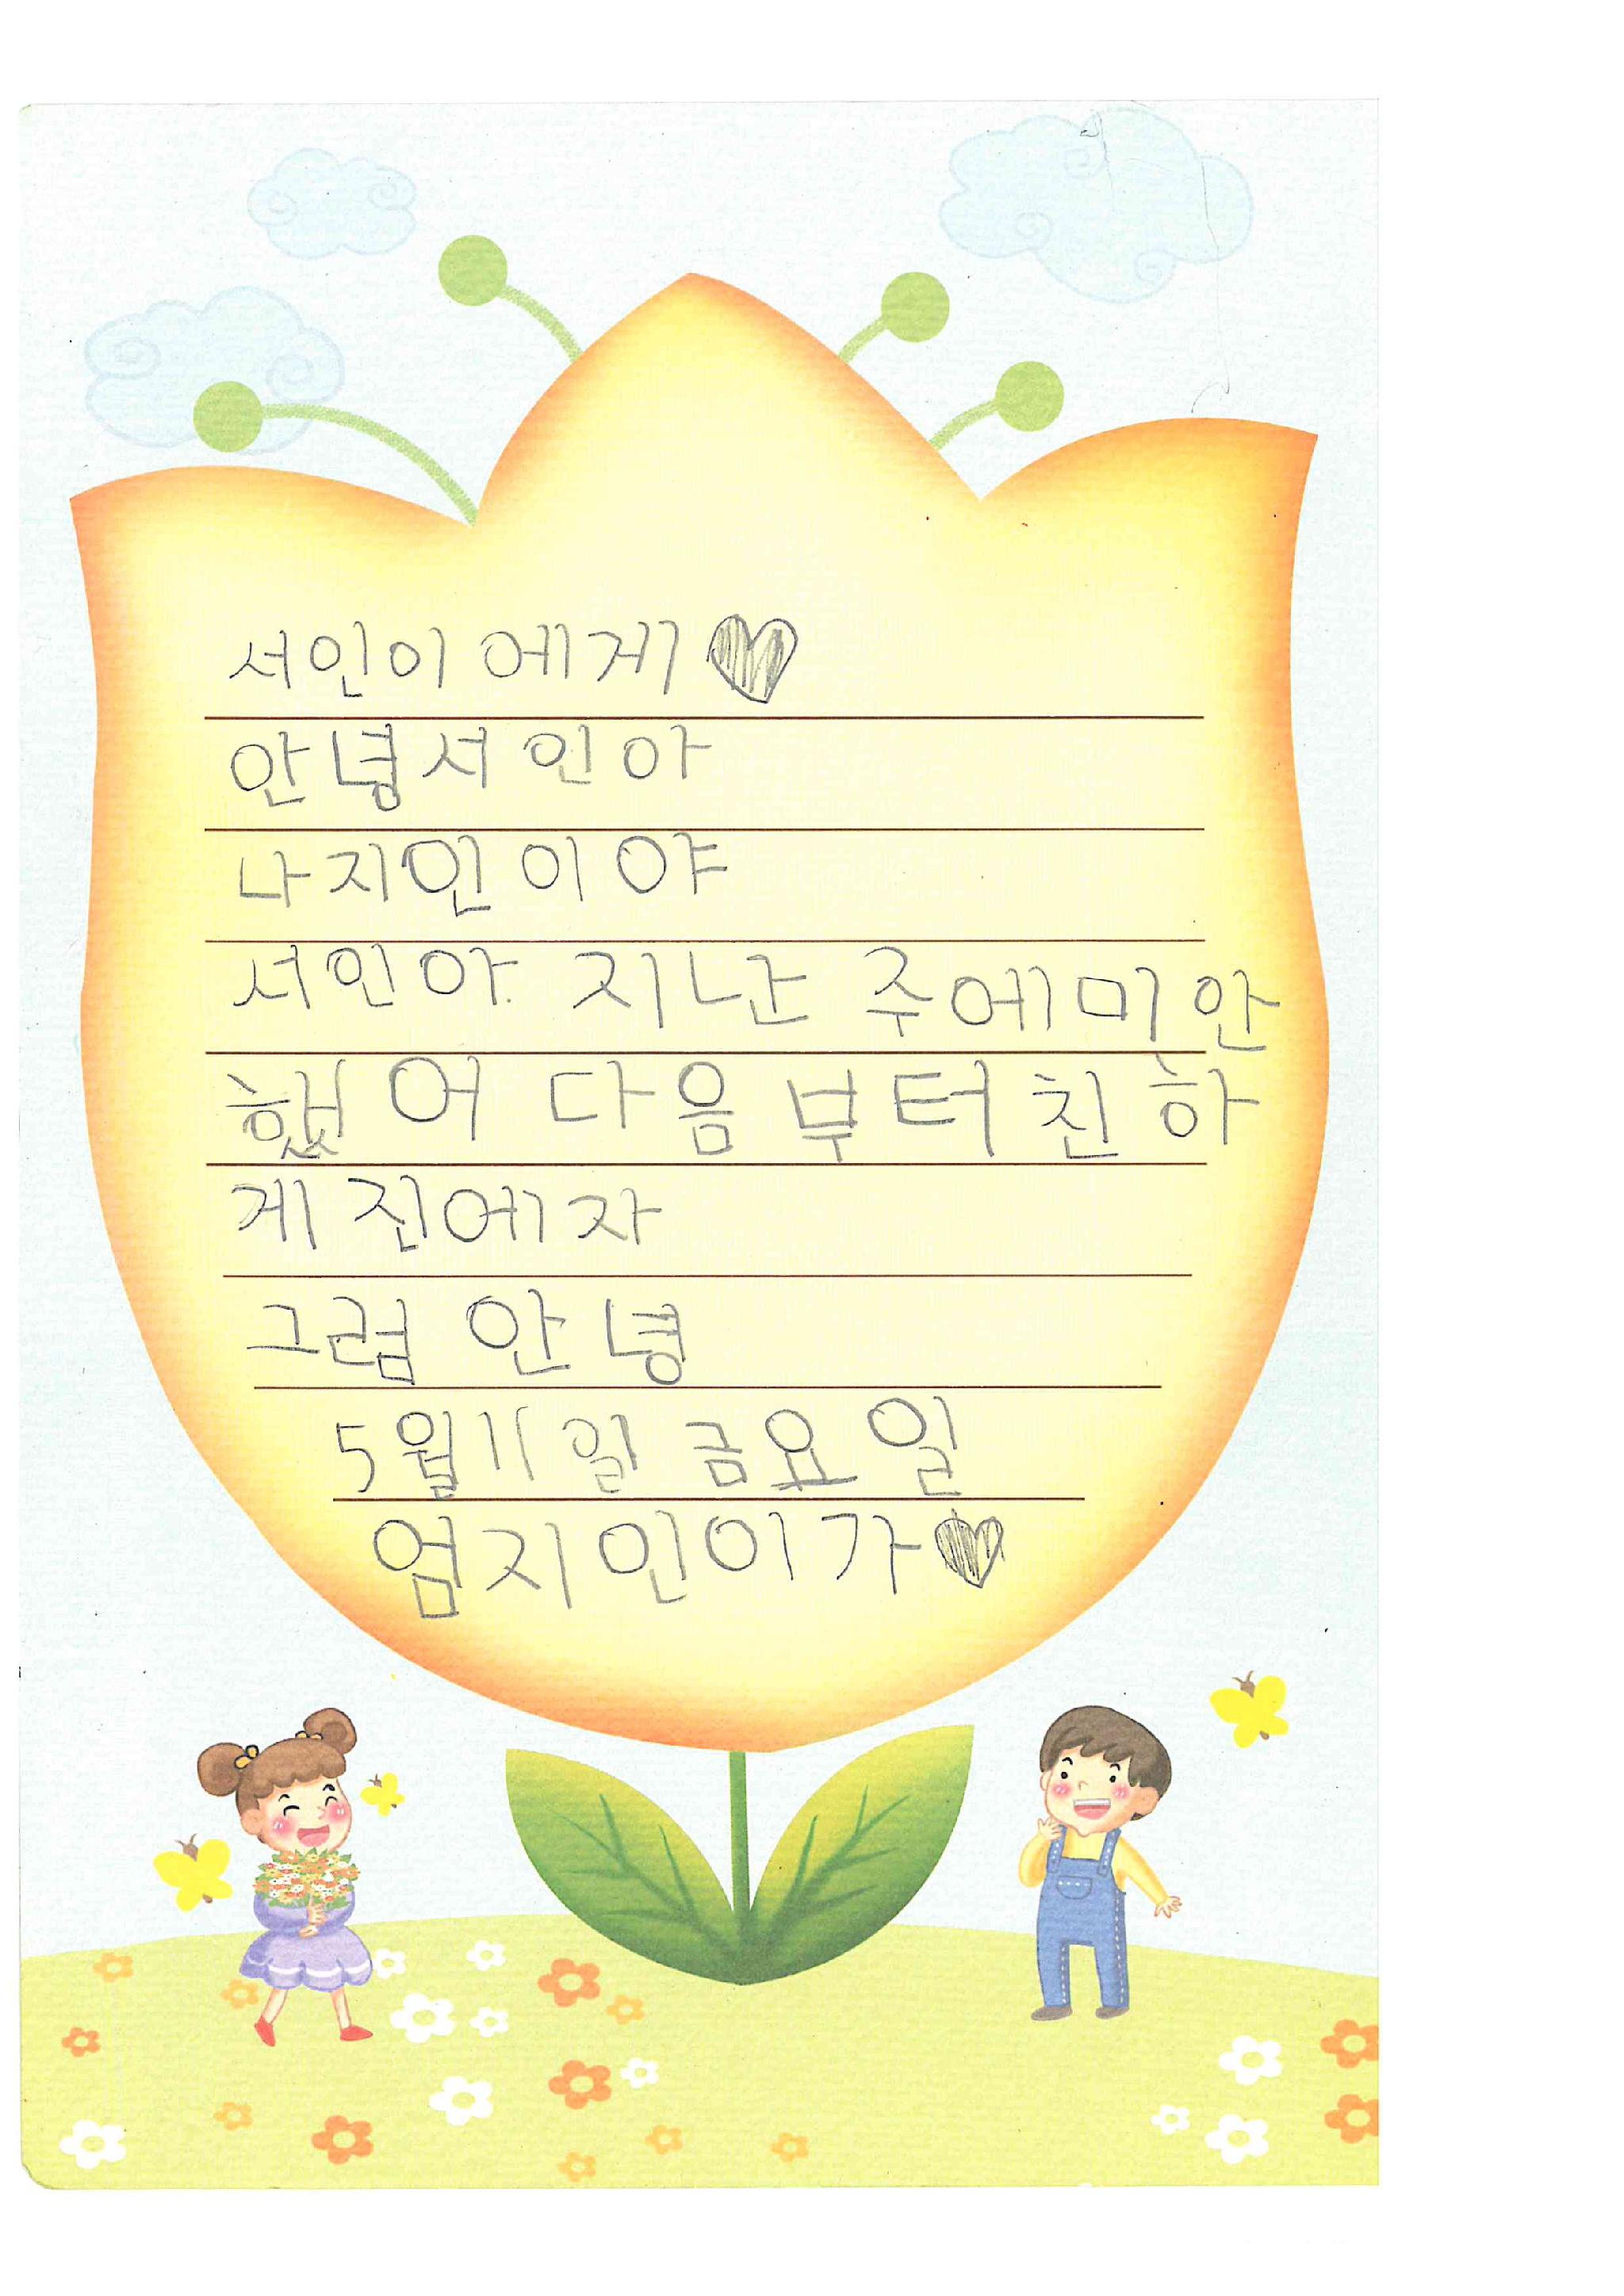 서인이 에게♥
안녕서 인 아
나지인 이 야
서인야 지난 주에미안
했어 다음 부터 친 하
게 진에자
그럼 안 녕
5월11일 금요일
엄지인이가♥